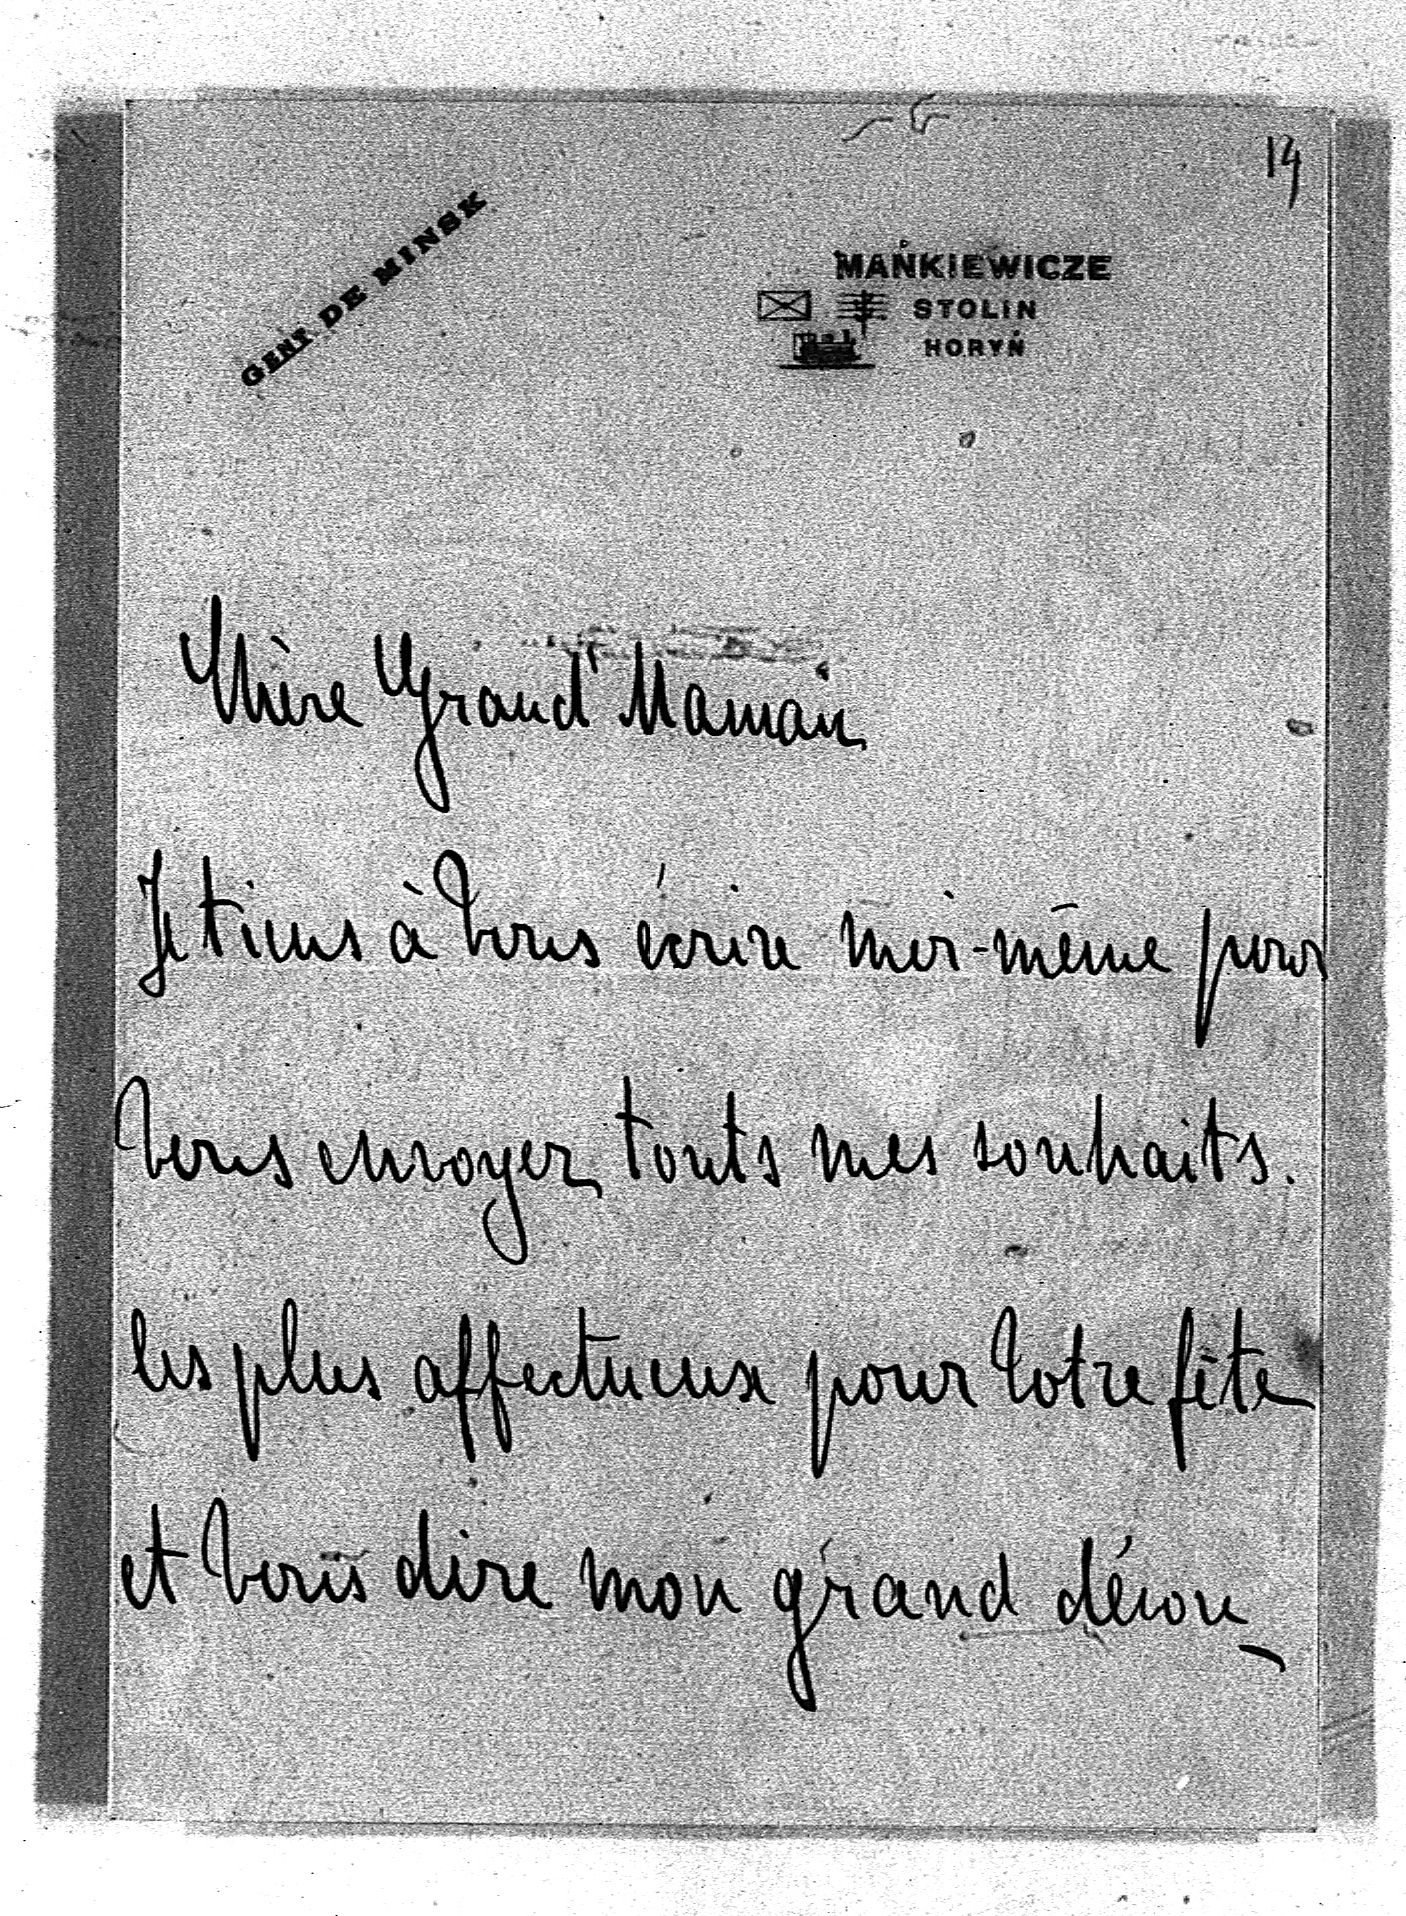 14
GENT. DE MINSK
MAŃKIEWICZE
STOLIN
HORYŃ
Chère Grand'Maman
Je tiens à Vous écrire moi-même pour
Vous envoyer touts mes souhaits.
les plus affectueux pour Votre fête
et Vous dire mon grand dévou-